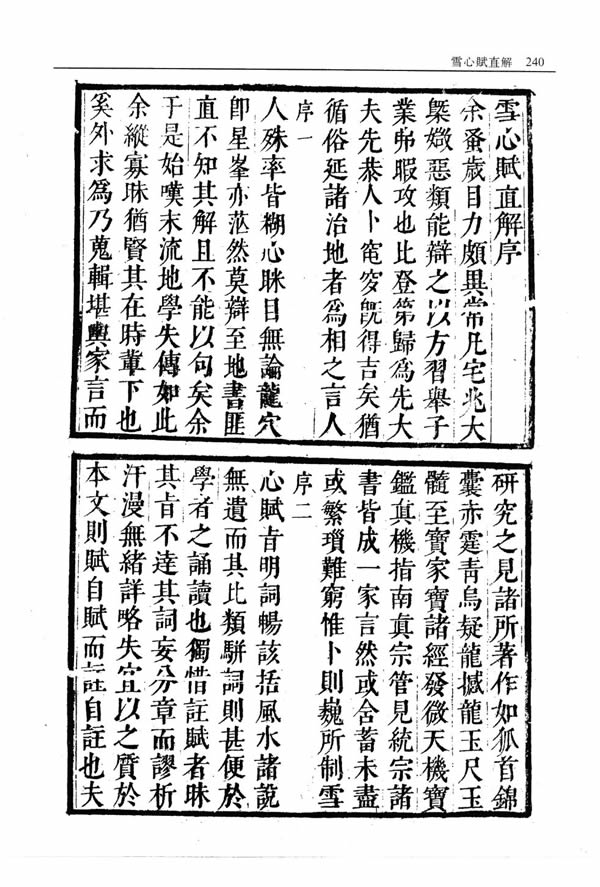 雪心賦直解 240
雪心賦直解序
余蚤歲目力頗異常凡宅兆大
槩媺惡類能辯之以方習舉子
業弗暇攻也比登第歸為先大
夫先恭人卜窀穸旣得吉矣猶
循俗延諸治地者為相之言人
序一
人殊率皆糊心眯目無論龍穴
卽星峯亦茫然莫辯至地書匪
直不知其解且不能以句矣余
于是始嘆末流地學失傳如此
余縱寡昧猶賢其在時輩下也
奚外求為乃蒐輯堪輿家言而
研究之見諸所著作如狐首錦
囊赤霆青烏疑龍撼龍玉尺玉
髓至寶家寶諸經發微天機寶
鑑真機指南真宗管見統宗諸
書皆成一家言然或含蓄未盡
或繁瑣難窮惟卜則巍所制雪
序二
心賦旨明詞暢該括風水諸說
無遺而其比類駢詞則甚便於
學者之誦讀也獨惜註賦者昧
其旨不達其詞妄分章而謬析
汗漫無緒詳略失宜以之質於
本文則賦自賦而註自註也夫